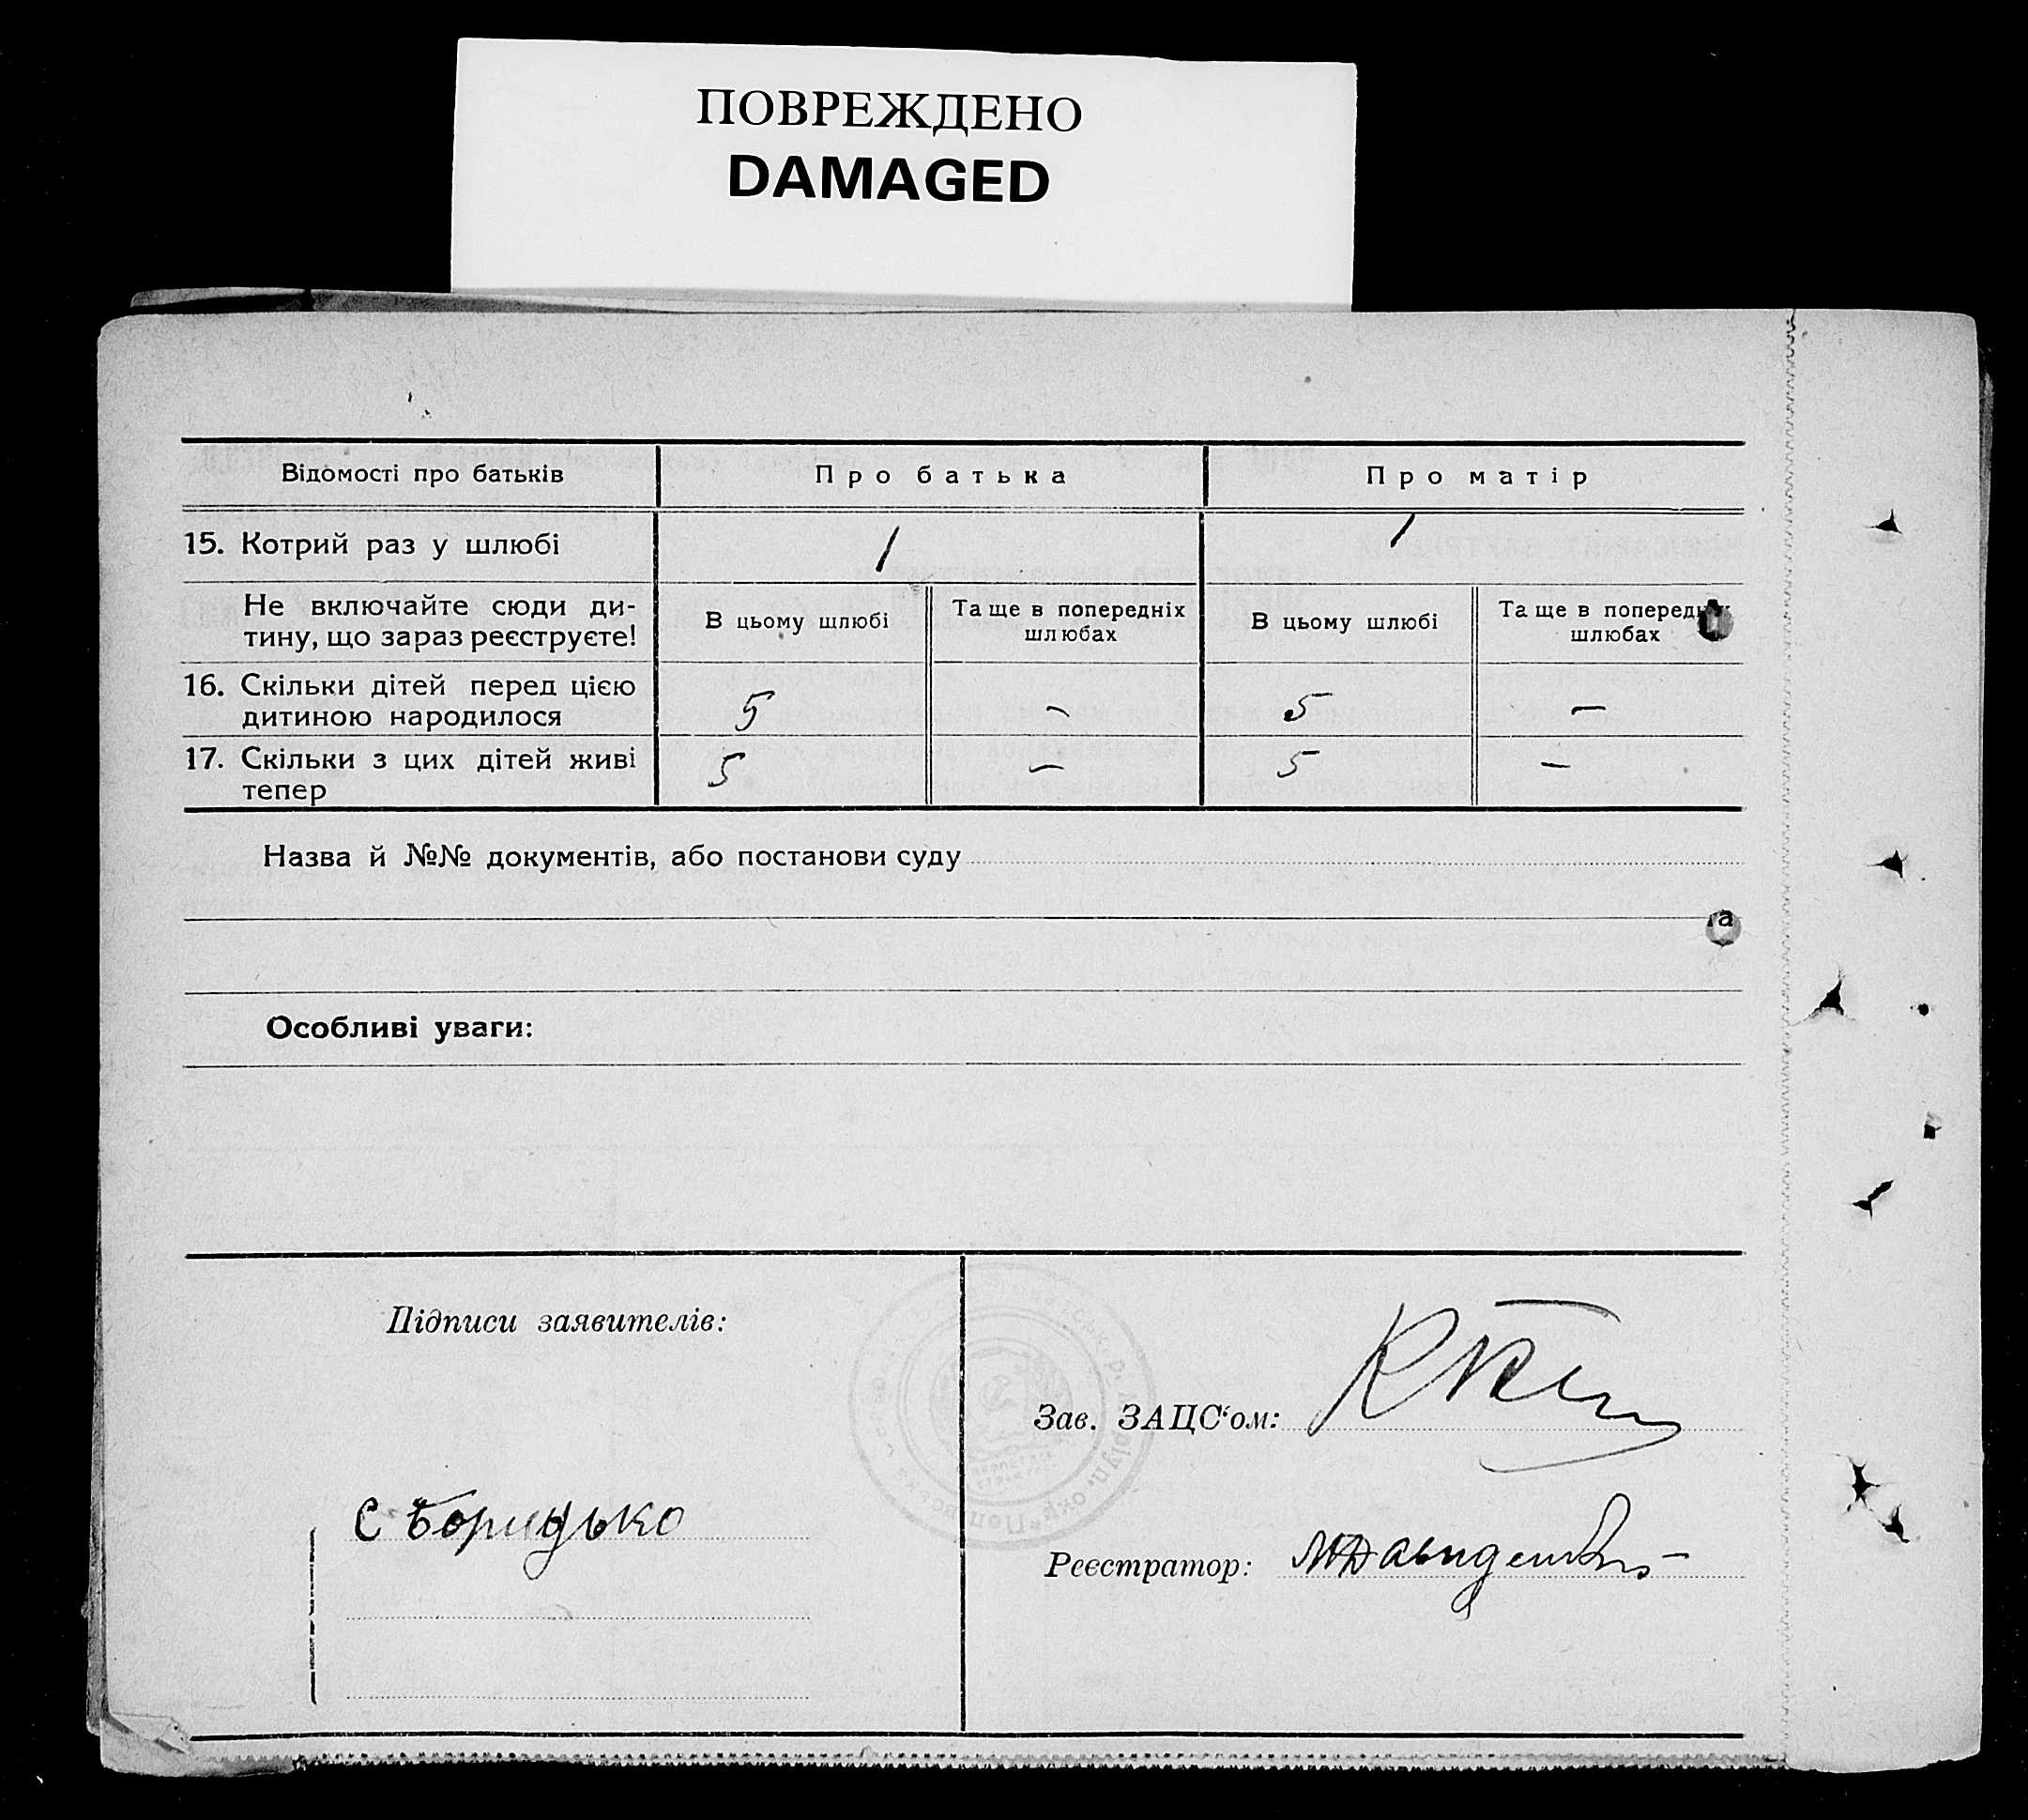 ПОВРЕЖДЕНО
DAMAGED
Відомості про батьків
Про батька
Про матір
15. Котрий раз у шлюбі
1
1
Не включайте сюди ди-
тину, що зараз реєструєте!
В цьому шлюбі
Та ще в попередніх
шлюбах
В цьому шлюбі
Та ще в попередніх
шлюбах
16. Скільки дітей перед цією
дитиною народилося
5
–
5
–
17. Скільки з цих дітей живі
тепер
5
–
5
–
Назва й №№ документів, або постанови суду
та
Особливі уваги:
Підписи заявителів:
Зав. ЗАЦС‘ом:
С Боридько
Реєстратор: